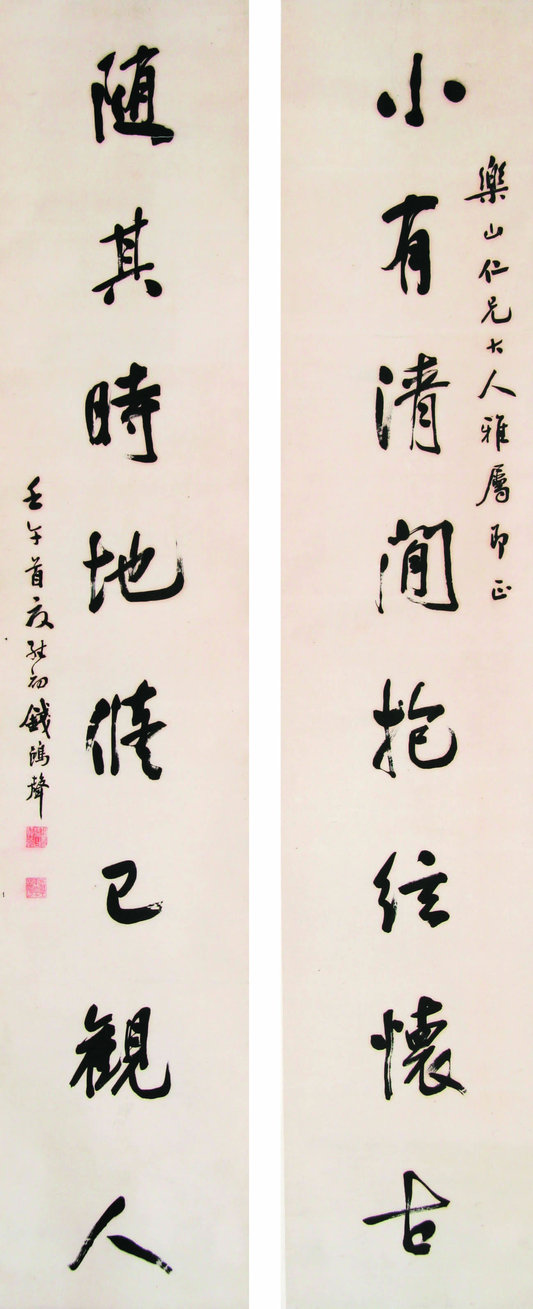 樂山仁兄大人雅屬即正
小有清閒抱絃懷古
随其時地脩己觀人
壬午首夏初錢鴻聲